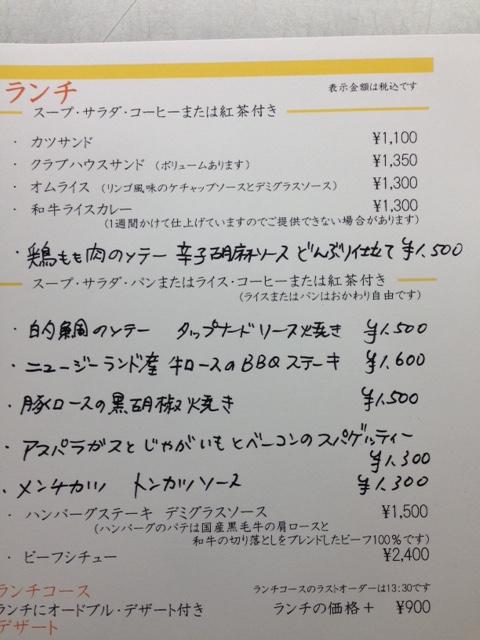 ランチ
表示金額は税込です
スープ・サラダ・コーヒーまたは紅茶付き
・ カツサンド ¥1,100
・ クラブハウスサンド (ボリュームあります) ¥1,350
・ オムライス (リンゴ風味のケチャップソースとデミグラスソース) ¥1,300
・ 和牛ライスカレー ¥1,300
(1週間かけて仕上げていますのでご提供できない場合があります)
・鶏もも肉のソテー 辛子胡麻ソース どんぶり仕立て ¥1,500
スープ・サラダ・パンまたはライス・コーヒーまたは紅茶付き
(ライスまたはパンはおかわり自由です)
・ 白身鯛のソテー タップナードソース焼き ¥1,500
・ ニュージーランド産 牛ロースのBBQステーキ ¥1,600
・ 豚ロースの黒胡椒焼き ¥1,500
・ アスパラガスとじゃがいもとベーコンのスパゲッティー
¥1,300
・ メンチカツ トンカツソース ¥1,300
・ ハンバーグステーキ デミグラスソース ¥1,500
(ハンバーグのパテは国産黒毛牛の肩ロースと
和牛の切り落としをブレンドしたビーフ100%です)
・ ビーフシチュー ¥2,400
ランチコース
ランチコースのラストオーダーは13:30です
ランチにオードブル・デザート付き ランチの価格+ ¥900
デザート